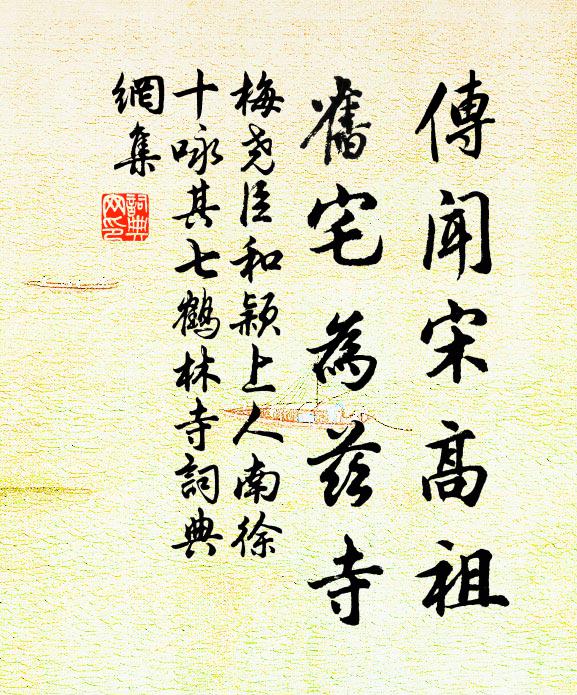 傳聞宋高祖
舊宅為茲寺
梅堯臣和潁上人南徐
十咏其七鶴林寺詞典
網集
詞典
网印